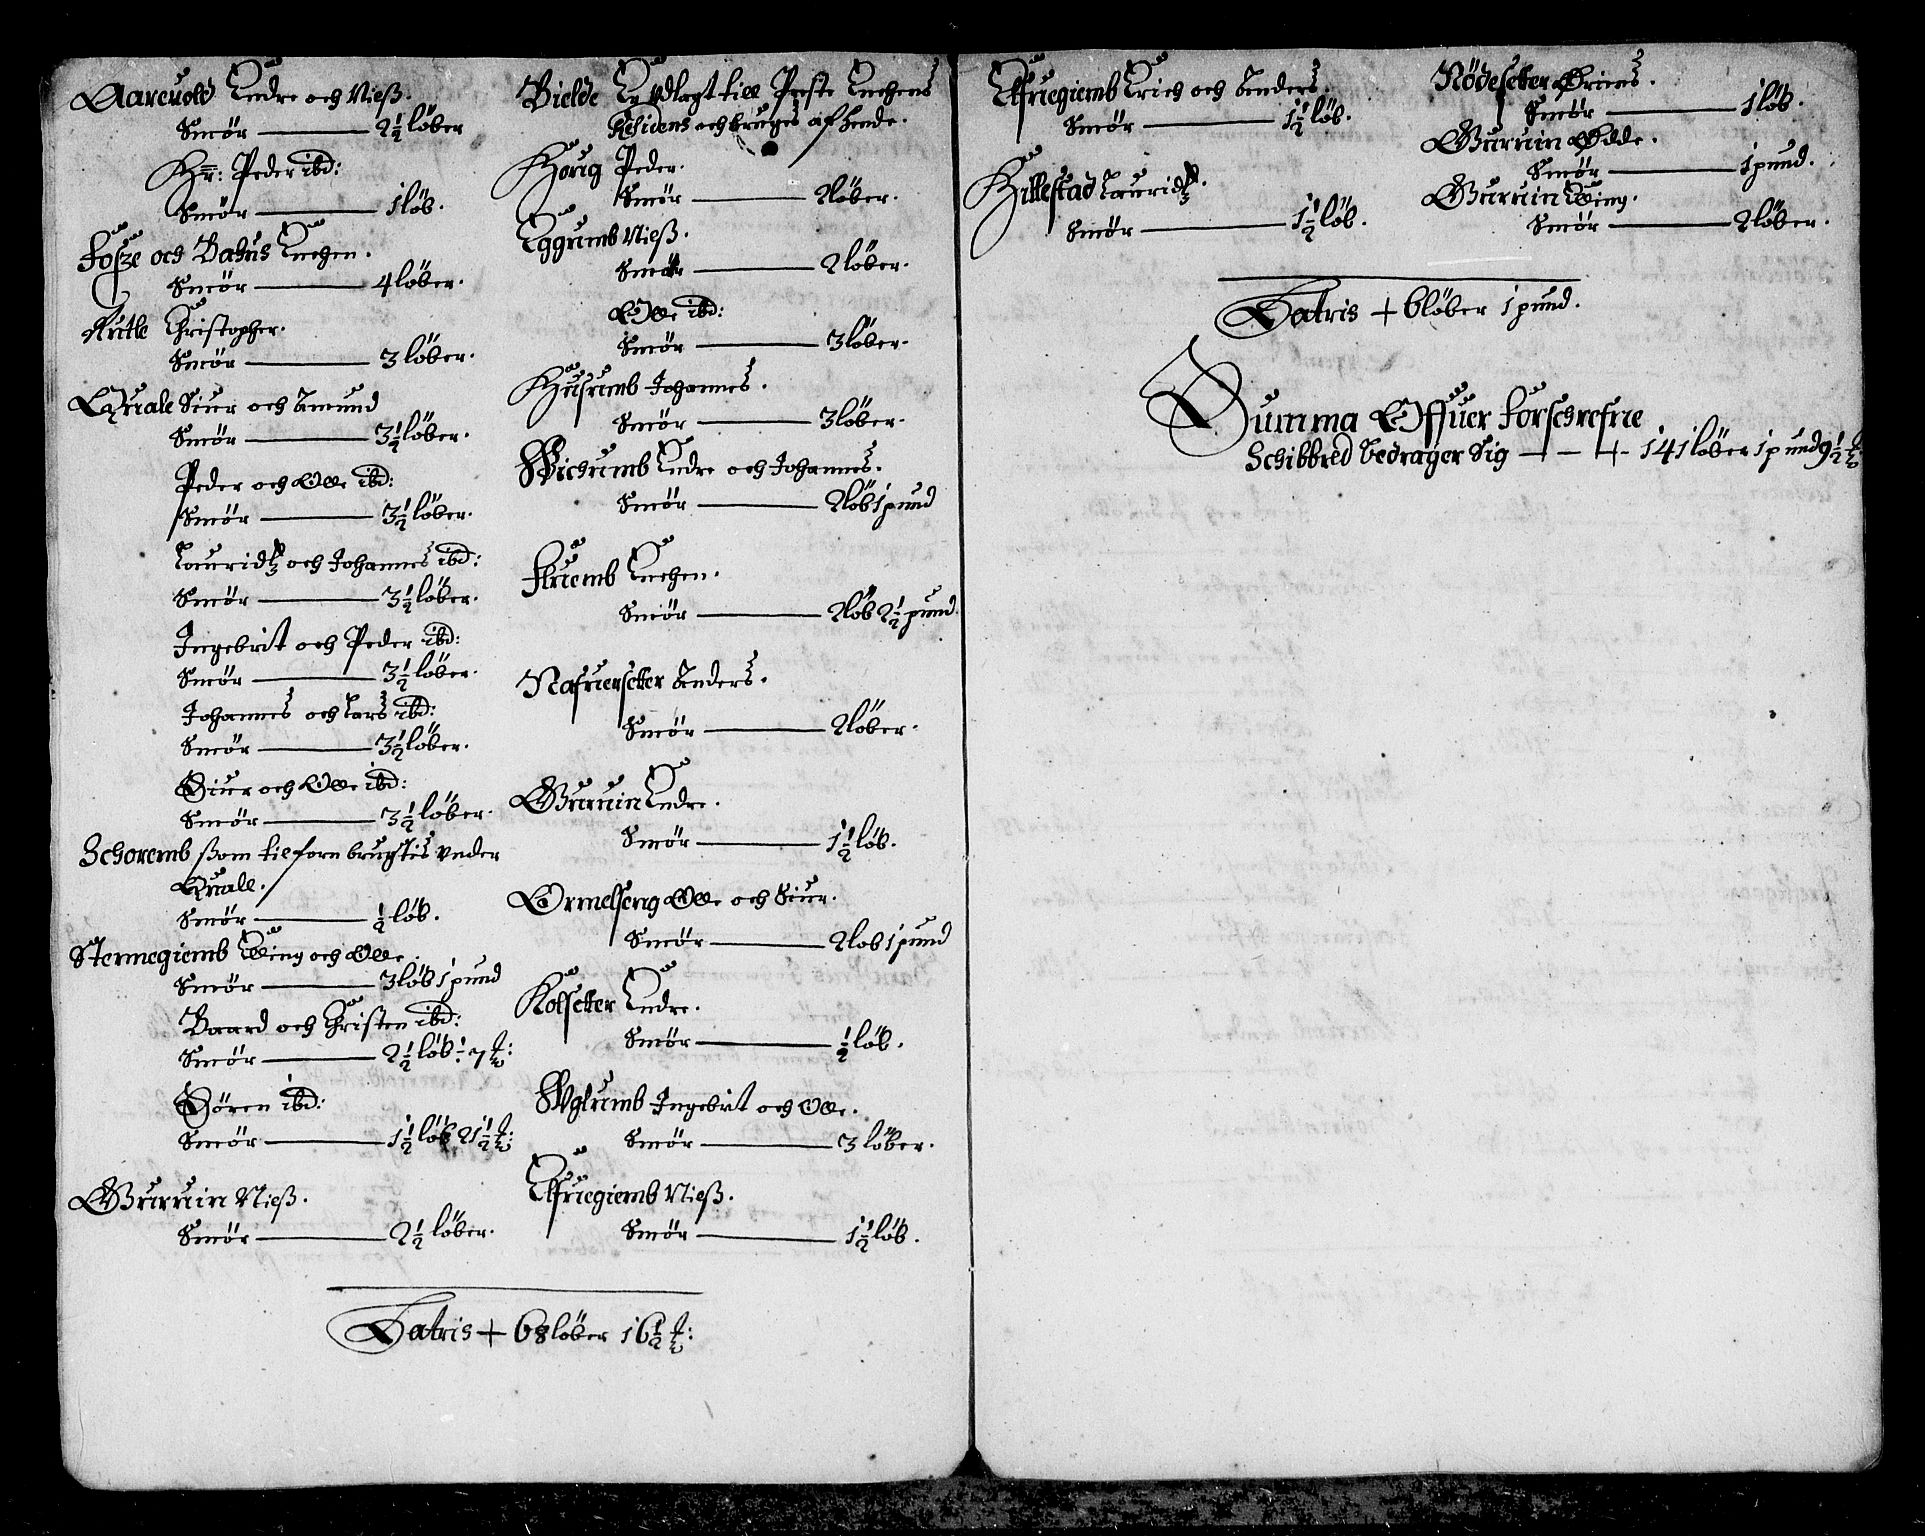 Aareuold Endre och Nielß.
Smör 2½ löber
Hr: Peder ibd:
Smör 1 löb.
Fosze och Bahus Enchen.
Smör 4 löber.
Christopher.
Smör 3 löber.
Quale Siur och Amund
Smör 3½ löber.
Peder och Olle ibd:
Smör 3½ löber.
Lauridtz och Johannes ibd:
Smör 3½ löber.
Ingebrit och Peder ibd:
Smör 3½ löber.
Johannes och Lars ibd:
Smör 3½ löber.
Siur och Olle ibd:
Smör 3½ löber.
Schoremb ßom tilforn brugtis vnder
Quale.
Smör ½ löb.
Stennegiemb Elling och Olle.
Smör 3 löb 1 pund
Baard och Christen ibd:
Smör 2½ löb ÷ 7 ℔:
Sören ibd:
Smör 1½ löb 21½ ℔:
Gurvin Nielß.
Smör 2½ löber.
Bielde Er Vdlagt till Preste Enchens
Residens och bruges af hende.
Hörig Peder.
Smör 2 löber.
Eggumb Nielß.
Smör 2 löber.
Olle ibd:
Smör 3 löber.
Husumb Johannes.
Smör 3 löber.
Wichumb Endre och Johannes.
Smör 2 löb 1 pund
Enchen.
Smör 2 löb 2½ pund.
Nafuersetter Anders.
Smör 2 löber.
Gurvin Endre.
Smör 1½ löb.
Ormelseng Olle och Siur.
Smör 2 löb 1 pund
Kolsetter Endre.
Smör ½ löb.
Wglumb Ingebrit och Olle.
Smör 3 löber.
Elfuegiemb Nielß.
Smör 1½ löb.
Latris + 68 löber 16½ ℔:
Elfuegiemb Erich och Anders.
Smör 1½ löb.
Hillestad Lauridtz.
Smör 1½ löb.
Nödesetter
Smör 1 löb.
Gurvin Odde.
Smör 1 pund.
Gurvin Elling.
Smör 2 löber.
Latris + 6 löber 1 pund.
Summa Offuer Forschrefne
Schibbred bedrager Sig + 141 löber 1 pund 9½ ℔